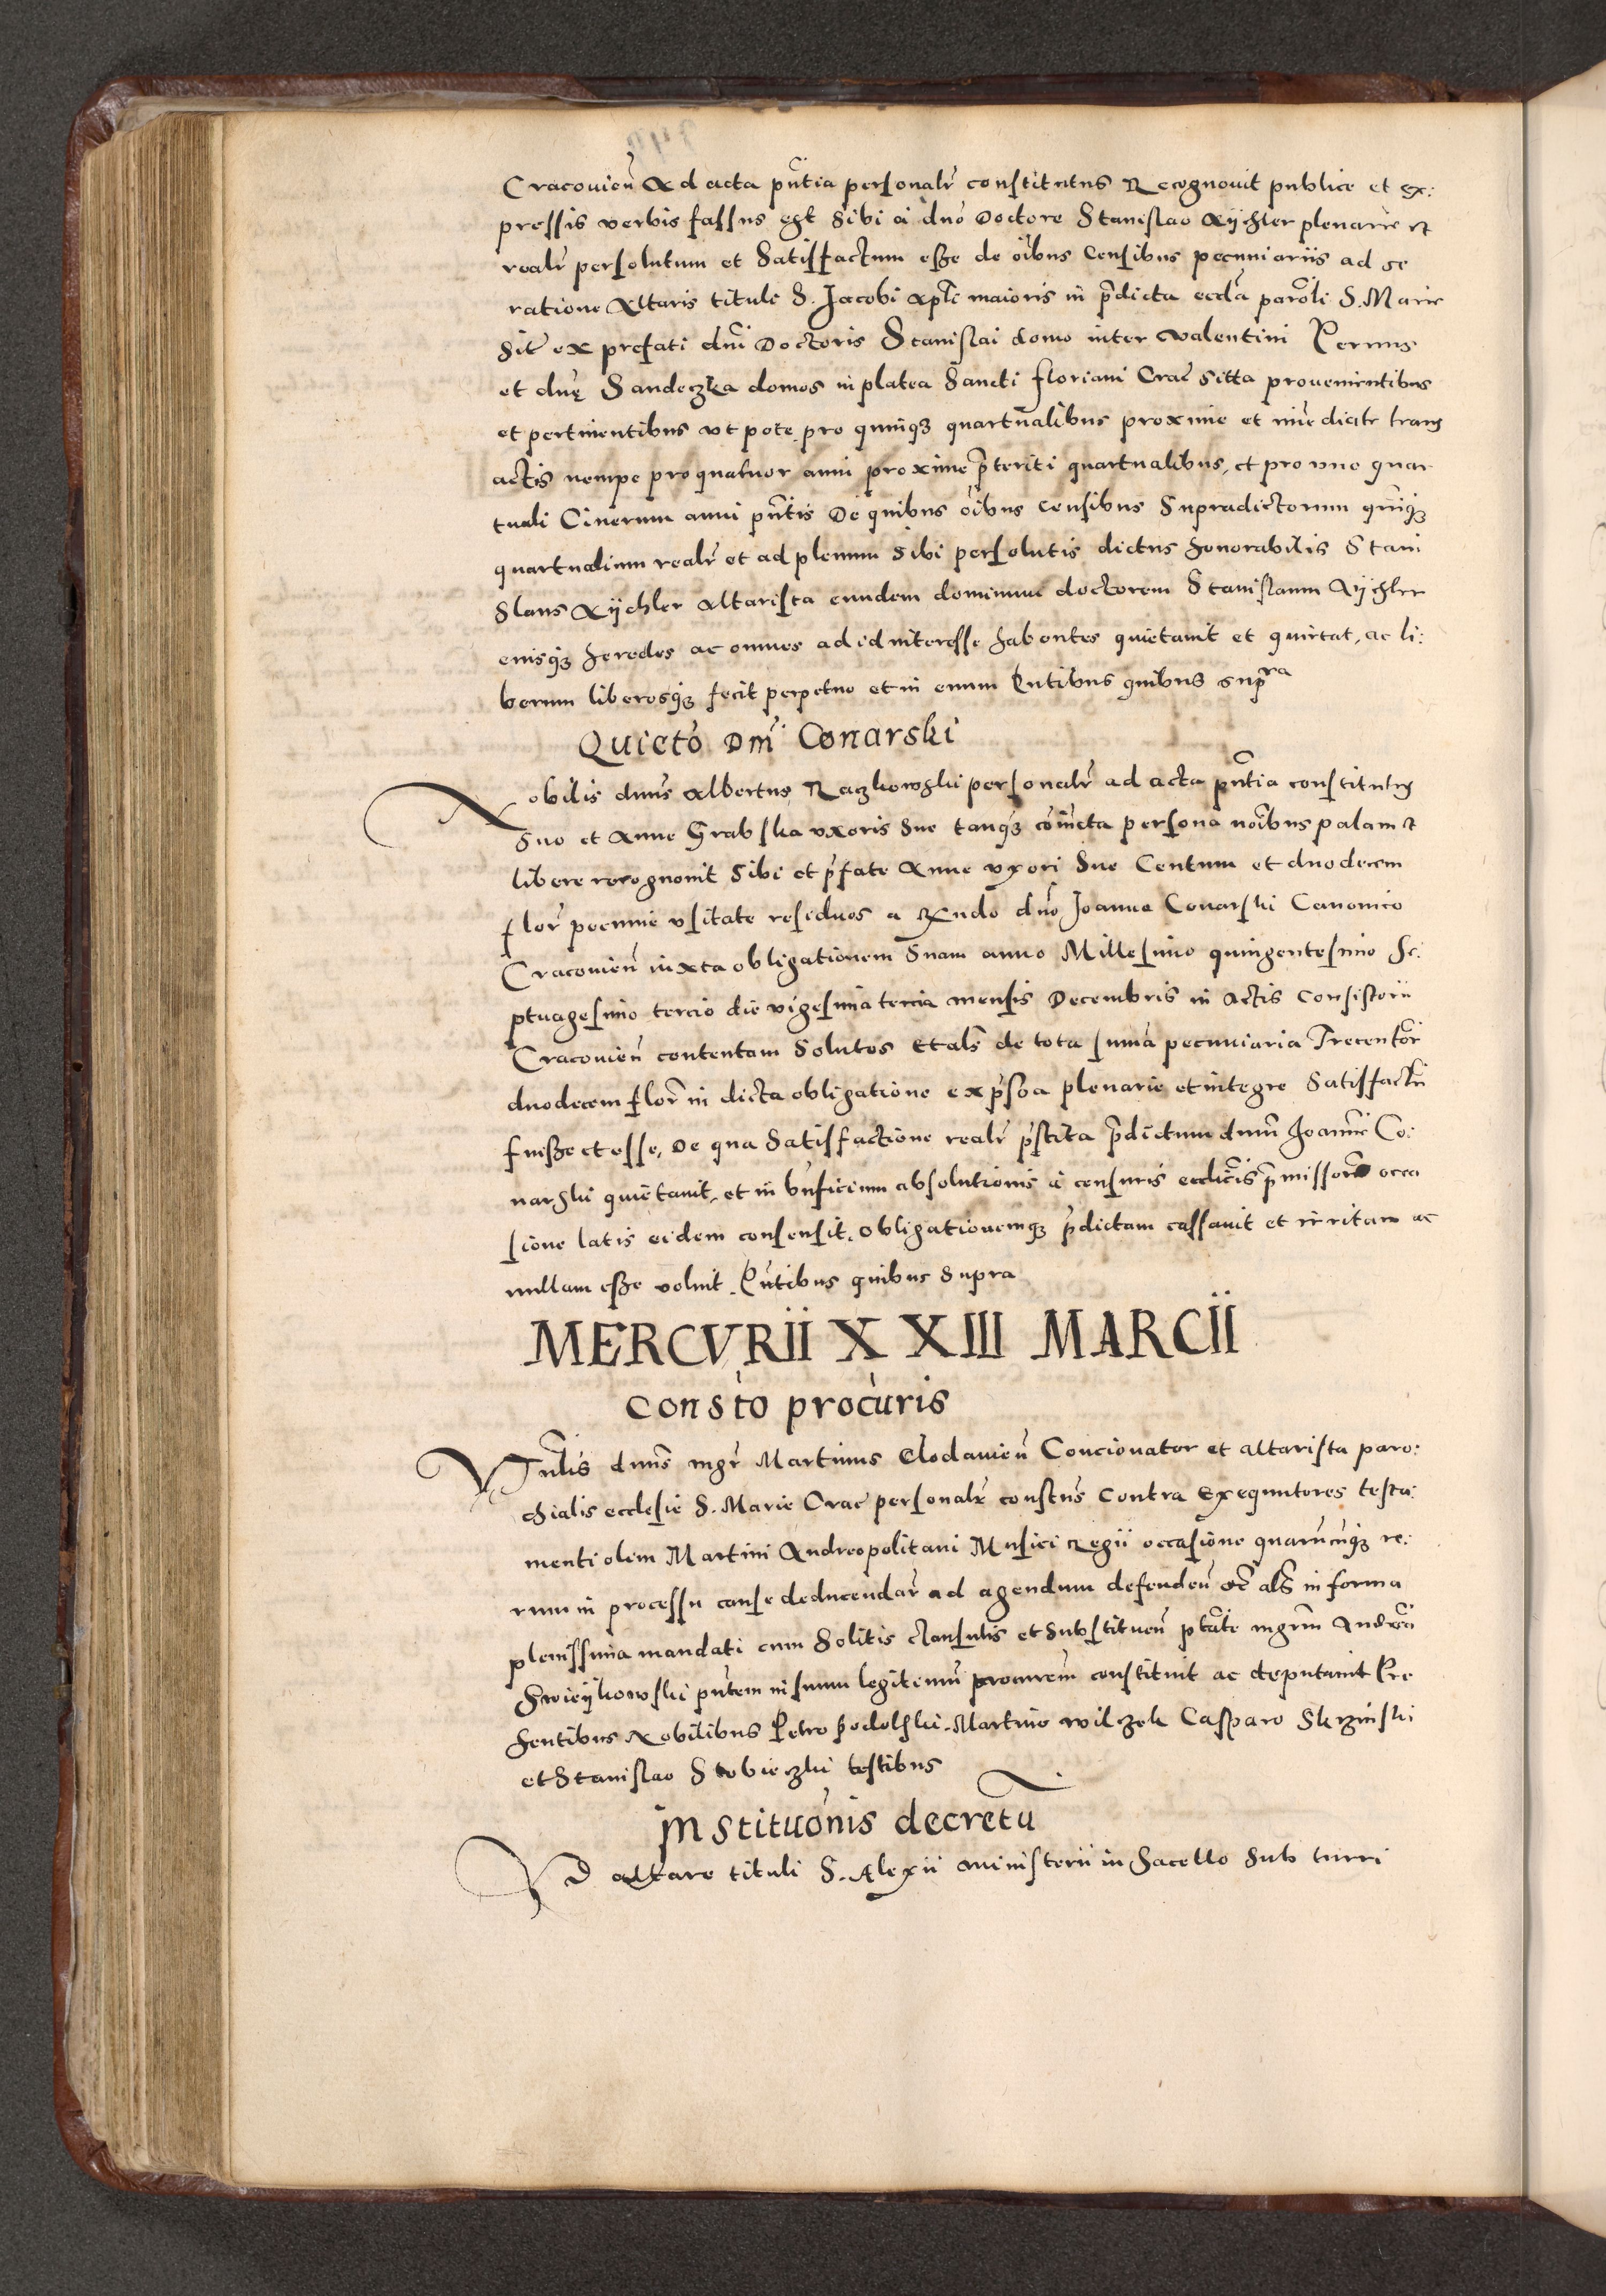 Cracovien̄ Ad acta pn̄tia personalr̄ constitutus Recognovit publice et ex:
pressis verbis fassus est Sibi a dn̄o Doctore Stanislao Aÿchler plenarie et
realr̄ persolutum et Satisfactum esse de oībus Censibus pecuniariis ad se
ratione Altaris tituli S. Jacobi apl̄i maioris in p̄dicta eccl̄a paroli S. Marie
Sit̄ ex prefati dn̄i Doctoris Stanislai domo inter Valentini Pernus
et dnę Sandeczka domos in platea Sancti floriani Crac̄ sitta provenientibus
et pertinentibus ut pote pro quinq3 quartualibus proxime et īmediate trans
actis nempe pro quatuor anni proxime p̄teriti quartualibus, et pro uno quar
tuali Cinerum anni pn̄tis De quibus oībus Censibus Supradictorum quinq3
quartualium realr̄ et ad plenum Sibi persolutis dictus honorabilis Stani
Slaus Aÿchler Altarista eundem dominum doctorem Stanislaum Aÿchler
eiusq3 heredes ac omnes ad id interesse habentes quietavit et quietat, ac li:
berum liberosq3 fecit perpetuo et in evum Pn̄tibus quibus supra
Quieto Dn̄i Conarski
Nobilis dnus Albertus Raczkowski personalr̄ ad acta pn̄tia constitutus
Suo et Anne Grabska uxoris Sue tanq3 coniūcta persona noībus palam et
libere recognovit Sibi et p̄fate Anne uxori Sue Centum et duodecem
flor̄ pecunie usitate residuos a Rn̄do dn̄o Joanne Conarski Canonico
Cracovien̄ iuxta obligationem Suam anno Millesimo quingentesimo Se:
ptuagesimo tercio die vigesima tercia mensis Decembris in Actis Consistorii
Cracovien̄ contentam Solutos Et als̄ de tota sum̄a pecuniaria Trecentor̄
duodecem flor̄ in dicta obligatione exp̄ssa plenarie et integre Satisfactū
fuisse et esse, De qua Satisfactione realr̄ p̄stita p̄dictum dnum̄ Joannē Co:
narski quietavit, et in bn̄ficium absolutionis a censuris eccl̄icis p̄missor̄ occa
sione latis eidem consensit, obligationemq3 p̄dictam cassavit et irritam ac
nullam esse voluit. Pn̄tibus quibus Supra
MERCVRII XXIII MARCII
Consto procuris
Vn̄lis dnus̄ mgr̄ Martinus Clodavien̄ Concionator et altarista paro:
chialis ecclesie S. Marie Crac̄ personalr̄ constus̄ Contra Exequutores testa:
menti olim Martini Andreopolitani Musici Regii occasione quarūcūq3 re:
rum in processu cause deducendar̄ ad agendum defenden̄ etc̄ als̄ in forma
plenissima mandati cum Solitis clausulis et Substituen̄ ptāte mgrum̄ Andreā
Swieÿkowski pn̄tem in suum legitimū procurem̄ constituit ac deputavit Pre
Sentibus Nobilibus Petro podolski. Martino wilczek Casparo Skrzinski
et Stanislao Stobieczki testibus
Institucōnis decretū
Ad altare tituli S. Alexii Ministerii in Sacello Sub turri